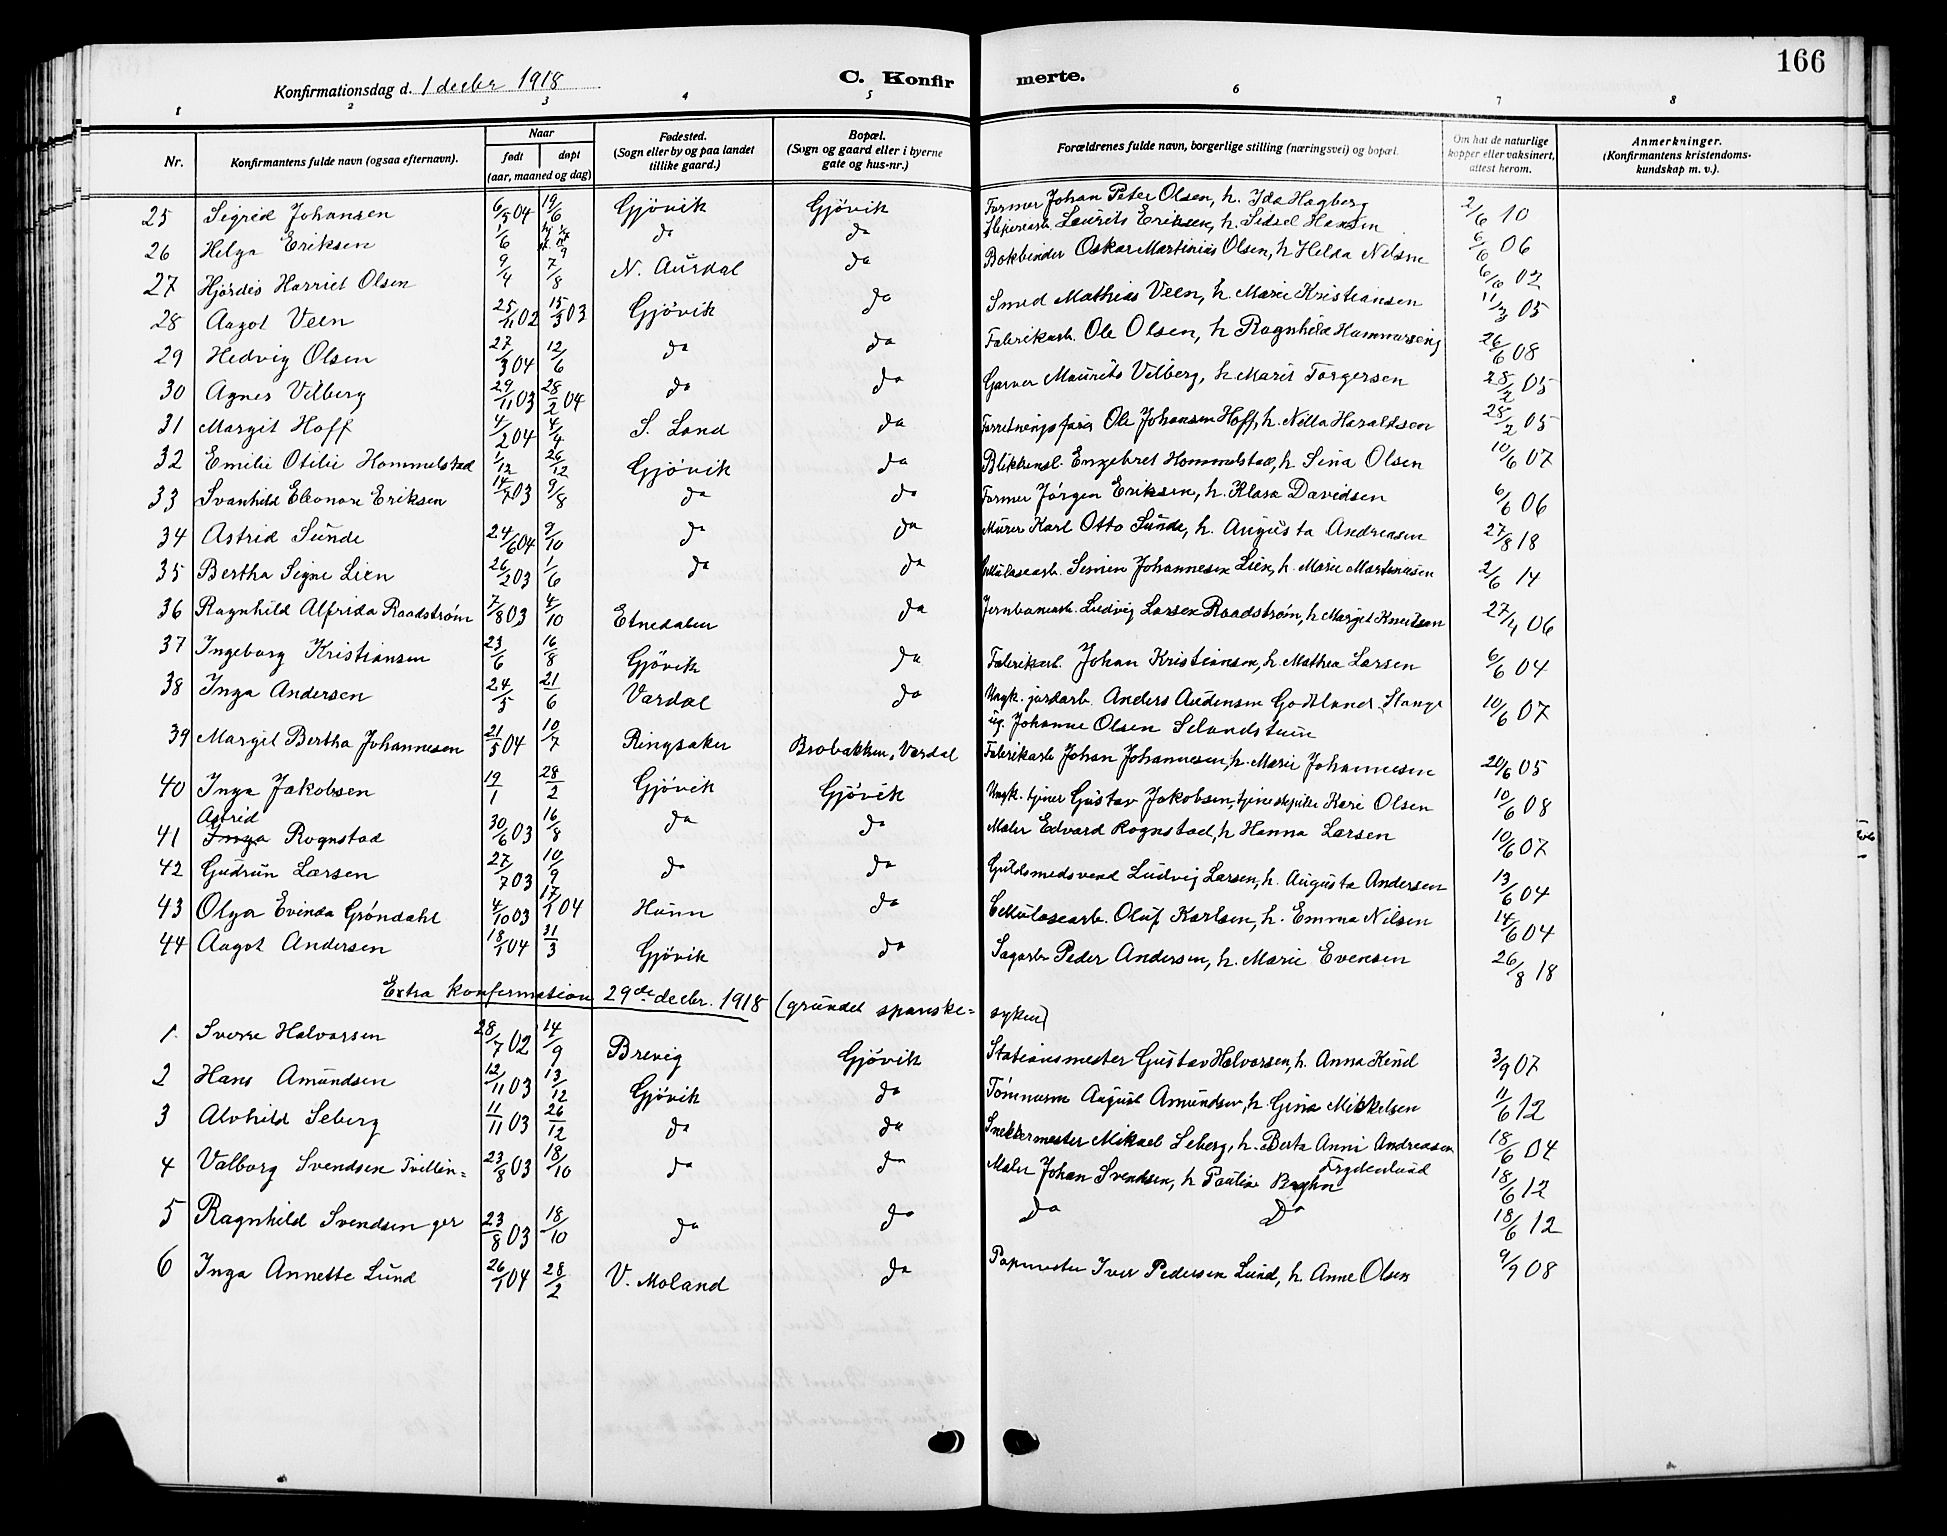 166
Konfirmationsdag d. 1 decbr 1918
C. Konfirmerte.
1 2 3 4 5 6 7 8
Nr.
Konfirmantens fulde navn (ogsaa efternavn).
Naar
født døpt
(aar, maaned og dag)
Fødested.
(Sogn eller by og paa landet
tillike gaard.)
Bopæl.
(Sogn og gaard eller i byerne
gate og hus-nr.)
Forældrenes fulde navn, borgerlige stilling (næringsvei) og bopæl.
Om hat de naturlige
kopper eller vaksinert,
attest herom.
Anmerkninger.
(Konfirmantens kristendoms-
kundskap m. v.).
25 Sigrid Johansen 6/5 04 19/6 Gjövik Gjövik Former Johan Peter Olsen, h. Ida Hagberg 2/6 10
26 Helga Eriksen 1/6 do do Laurits Eriksen, h. Sidsel Hansen 6/6 06
27 Hjördis Harriet Olsen 9/4 7/8 N. Aurdal do Bokbinder Oskar Martinius Olsen, h Helda Nilsen 6/6 02
28 Aagot Veen 25/11 02 15/3 03 Gjövik do Smed Mathias Veen, h. Marie Kristiansen 11/3 05
29 Hedvig Olsen 27/3 04 12/6 do do Fabrikarb. Ole Olsen, h Ragnhild Hammerseng 26/6 08
30 Agnes Vilberg 29/11 03 28/2 04 do do Garver Maurits Vilberg, h. Marit Torgersen 28/2 05
31 Margit Hoff 4/2 04 4/4 S. Land do Forretningsfører Ole Johansen Hoff, h. Nilla Haraldsen 28/2 05
32 Emilie Otilie Hommelstad 1/12 26/12 Gjövik do Blikkensl. Engebret Hommelstad, h Sina Olsen 10/6 07
33 Svanhild Eleonore Eriksen 14/7 03 9/8 do do Former Jörgen Eriksen, h. Klara Davidsen 6/6 06
34 Astrid Sunde 24/6 04 9/10 do do Murer Karl Otto Sunde, h. Augusta Andreasen 27/8 18
35 Bertha Signe Lien 26/2 03 1/6 do do Cellulosearb. Simen Johannesen Lien, h. Marie Martinsen 2/6 14
36 Ragnhild Alfrida Raadström 7/8 03 4/10 Etnedalen do Jernbanearb. Ludvig Larsen Raadström, h Margit Knutsen 27/4 06
37 Ingeborg Kristiansen 23/6 16/8 Gjövik do Fabrikarb. Johan Kristiansen, h. Mathea Larsen 6/6 04
38 Inga Andersen 24/5 21/6 Vardal do Ungk. jordarb. Anders Audensen Godtland Stange
ug. Johanne Olsen Selandstuen 10/6 07
39 Margit Bertha Johannesen 21/5 04 10/7 Ringsaker Brobakken, Vardal Fabrikarb Johan Johannesen, h. Marie Johannesen 20/6 05
40 Inga Jakobsen 19/1 28/2 Gjövik Gjövik Ungk. tjener Gustav Jakobsen, tjenestepike Kari Olsen 10/6 08
Astrid
41 Inga Rognstad 30/6 03 16/8 do do Maler Edvard Rognstad, h Hanna Larsen 10/6 07
42 Gudrun Larsen 27/7 03 10/9 do do Guldsmedsvend Ludvig Larsen, h. Augusta Andersen 13/6 04
43 Olga Evinda Gröndahl 4/10 03 17/1 04 Hunn do Cellulosearb. Oluf Karlsen, h. Emma Nilsen 14/6 04
44 Aagot Andersen 18/1 04 31/3 Gjövik do Sagarb Peder Andersen, h. Marie Evensen 26/8 18
Extra konfirmation 29de decbr. 1918 (grundet spanske=syken)
1 Sverre Halvorsen 28/7 02 14/9 Brevig Gjövik Stationsmester Gustav Halvorsen, h. Anna Kind 3/9 07
2 Hans Amundsen 12/11 03 13/12 Gjövik do Tömmerm August Amundsen, h Gina Mikkelsen 11/6 12
3 Alvhild Seberg 11/11 03 26/12 do do Snekkermester Mikael Seberg, h. Berta Anni Andreasen 18/6 04
4 Valborg Svendsen Tvillin= 23/8 03 18/10 do do Maler Johan Svendsen, h Pauline Frydenlund 18/6 12
5 Ragnhild Svendsen ger 23/8 03 18/10 do do Do Do 18/6 12
6 Inga Annette Lund 26/1 04 28/2 V. Moland do Papmester Iver Pedersen Lund, h. Anne Olsen 9/9 08